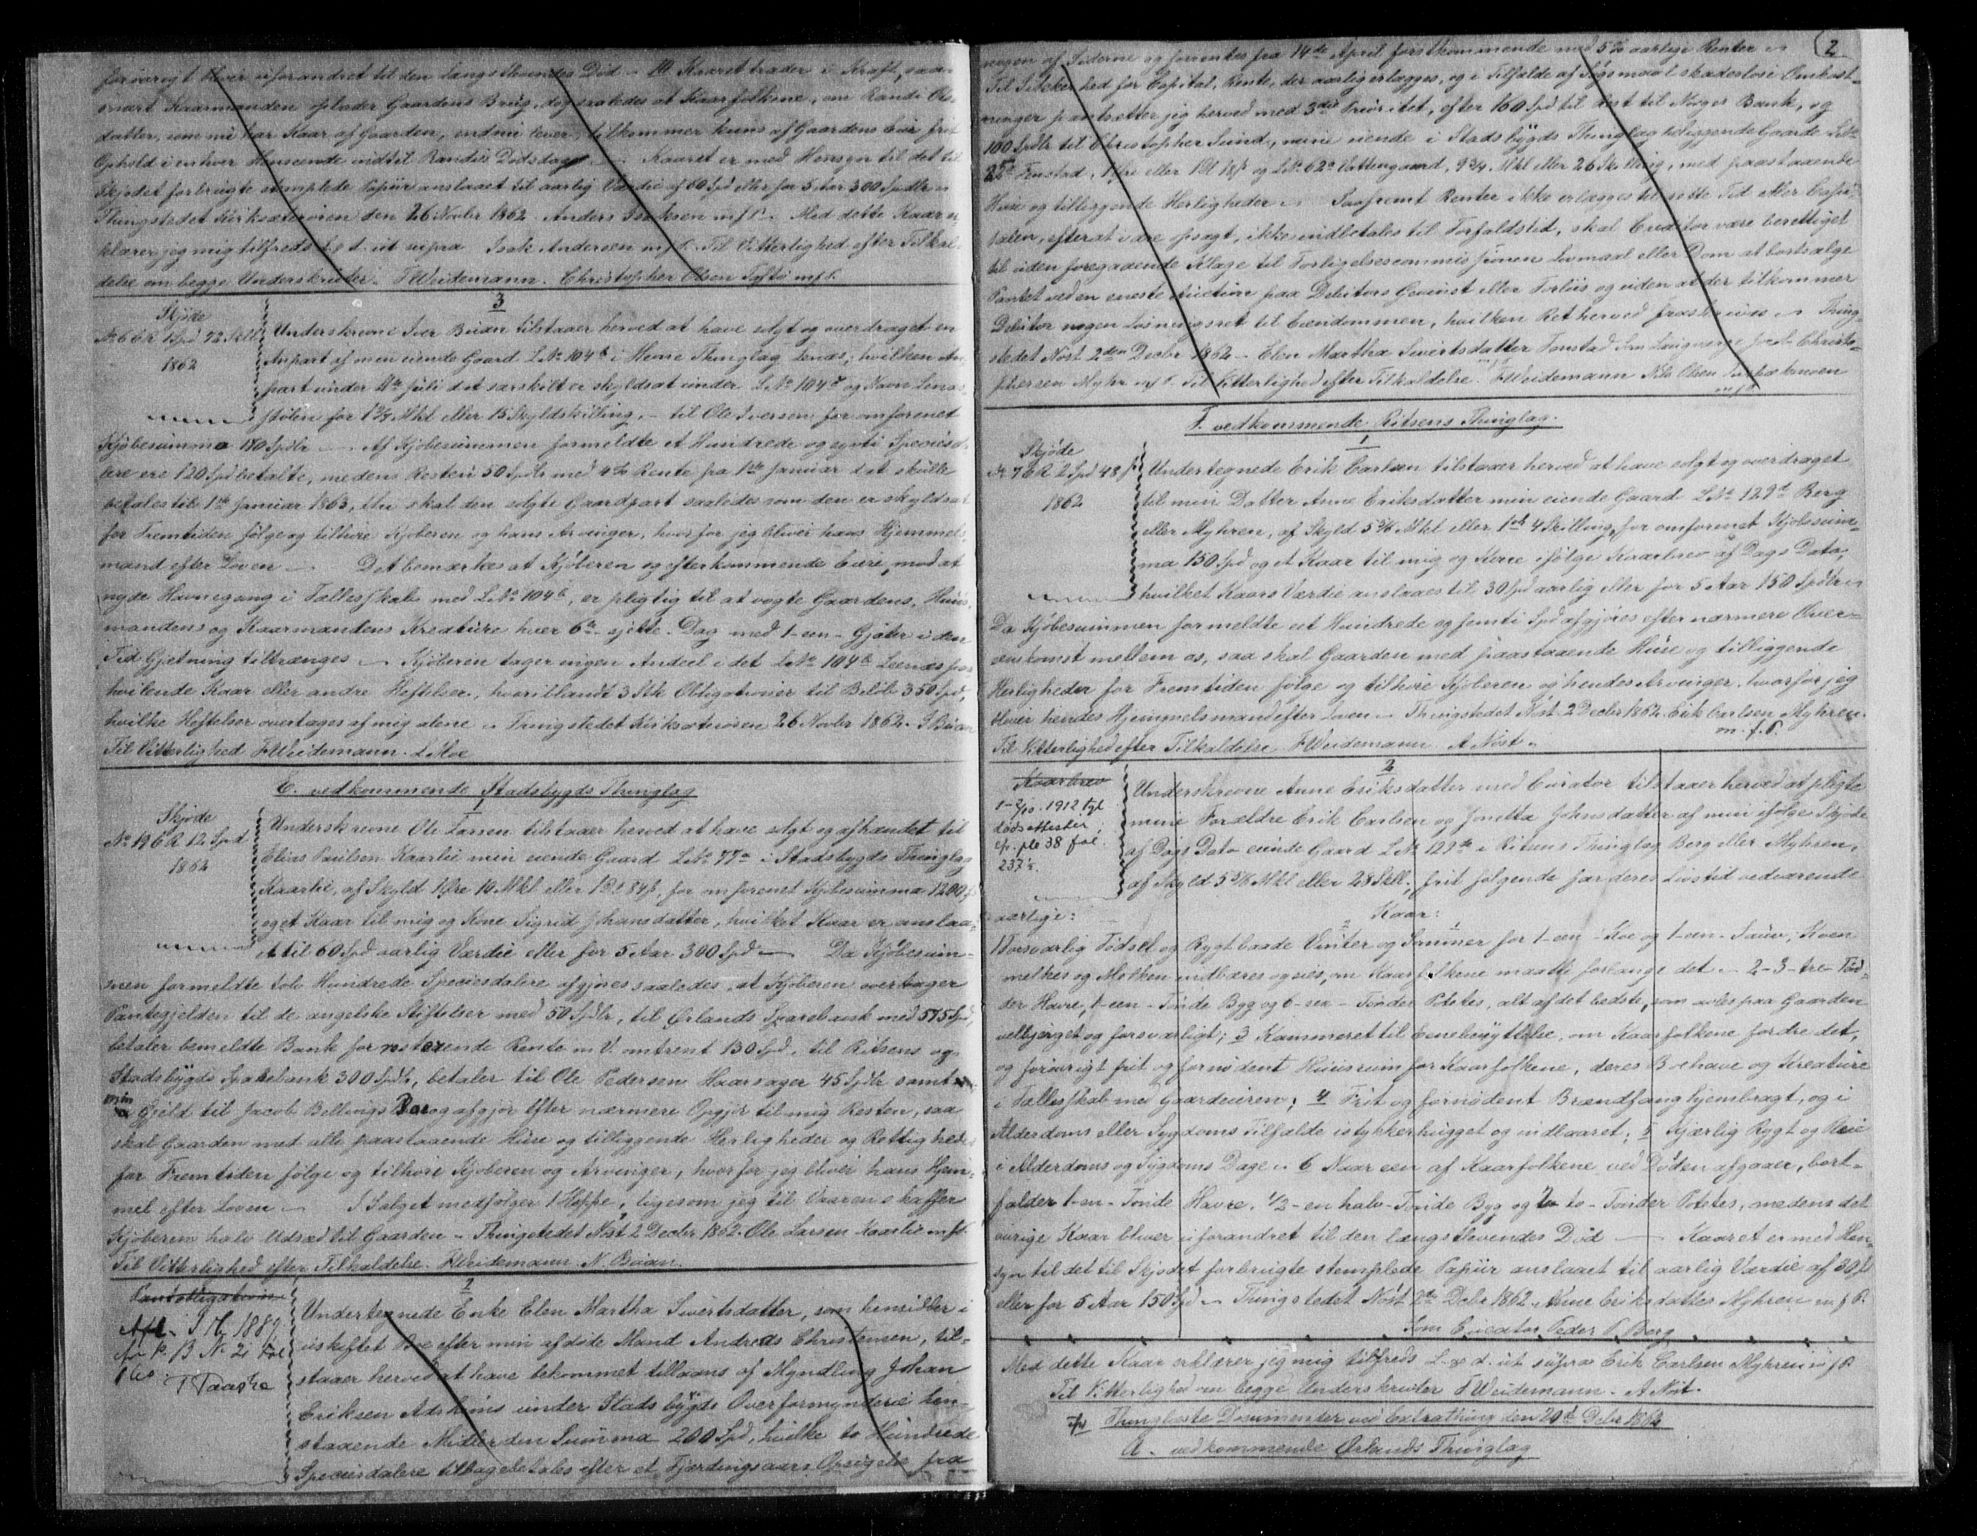 forøvrigt bliver uforandret til den længstlevendes Død – 10 Kaaret træder i Kraft, saa-
snart Kaarmanden oplader Gaardens Brug, dog saaledes at Kaarfolkene, om Randi Ols-
datter, som nu har Kaar af Gaarden, endnu lever, tilkommer kuns af Gaardens Eier frit
Ophold i enhver Henseende indtil Randis Dødsdag – Kaaret er med Hensyn til det til
Skjødet forbrugte stemplede Papiir anslaaet til aarlig Værdie af 60 Spd eller for 5 Aar 300 Spdlr
Thingstedet Kirksæterøren den 26 Novbr 1862. Anders Isaksen m.f.P. – Med dette Kaar er-
klærer jeg mig tilfreds L d. ut supra Isak Andersen m.f.P. Til Vitterlighed efter Tilkal-
delse om begge Underskrifter. F Weidemann. Christopher Olsen m.f.P.
3
Skjøde
No 66 R 1 Spd 72 Skill
1862
Underskrevne Iver Buaen tilstaaer herved at have solgt og overdraget en
Anpart af min eiende Gaard LNo 104 b i Hemne Thinglag Lenæs; hvilken An-
part under 4de Juli d. A. særskilt er skyldsat under LNo 104 og Navn Lenæs-
støl for Mkl eller 15 Skyldskilling, – til Ole Iversen for omforenet
Kjøbesumma 170 Spdlr – Af Kjøbesummen formeldte et Hundrede og sytti Speciesda-
lere ere 120 Spd betalte, medens Resten 50 Spdlr med 4 % Rente fra 1ste Januar d. A. skulle
betales til 1ste Januar 1863, thi skal den solgte Gaardpart saaledes som den er skyldsat
for Fremtiden følge og tilhøre Kjøberen og hans Arvinger, hvorfor jeg bliver hans Hjemmels-
mand efter Loven – Det bemærkes at Kjøberen og efterkommende Eiere, mod at
nyde Havnegang i Fællesskab med LNo 104 b, er pligtig til at vogte Gaardens, Huus-
mandens og Kaarmandens Kreature hver 6te – sjette – Dag med 1 – en – Gjæter i den
Tid Gjetning tiltrænges – Kjøberen tager ingen Andeel i det LNo 104 b Lenæs paa-
hvilende Kaar eller andre Heftelser, hvoriblandt 3 Stk Obligationer til Beløb 350 Spd,
hvilke Heftelser overtages af mig alene – Thingstedet Kirksæterøren 26 Novbr 1862. I Buaen
Til Vitterlighed F Weidemann. L Moe
E. vedkommende Stadsbygds Thinglag
1
Skjøde
No 196 R 12 Spd
1862
Underskrevne Ole Larsen tilstaaer herved at have solgt og afhændet til
Elias Paulsen Kaarlie min eiende Gaard LNo 77 a i Stadsbygds Thinglag
Kaarlie, af Skyld 1 Øre 10 Mkl eller 1 D 1 Ort 8 ß, for omforenet Kjøbesumma 1200 Spd
og et Kaar til mig og Kone Sigrid Johansdatter, hvilket Kaar er anslaa-
et til 60 Spd aarlig Værdie eller for 5 Aar 300 Spd – Da Kjøbesum-
men formeldte tolv Hundrede Speciesdalere afgjøres saaledes, at Kjøberen overtager
Pantegjelden til de angelske Stiftelser med 50 Spdlr, til Ørlands Sparebank med 575 Spd,
betaler bemeldte Bank for resterende Rente m. V. omtrent 130 Spd, til Ritsens og
Stadsbygds Sparebank 300 Spdlr, betaler til Ole Pedersen Haarsager 45 Spdlr samt
min Gjeld til Jacob Bellvigs og afgjør efter nærmere Opgjør til mig Resten, saa
skal Gaarden med alle paastaaende Huse og tilliggende Herligheder og Rettigheder
for Fremtiden følge og tilhøre Kjøberen og Arvinger, hvorfor jeg bliver hans Hjem-
mel efter Loven – I Salget medfølger 1 Hoppe, ligesom jeg til Vaaren skaffer
Kjøberen halv Udsæd til Gaarden – Thingstedet Nøst 2 Decbr 1862. Ole Larsen Kaarlie m.f.P.
Til Vitterlighed efter Tilkaldelse. F Weidemann. N. Buaen.
2
Pantobligation
Afl. 1889
No 2 Fol
Undertegnede Enke Elen Martha Sivertsdatter, som hensidder i
uskiftet Boe efter min afdøde Mand Andreas Christensen, til-
staaer herved at have bekommet tillaans af Myndling Johan
Eriksen Adsheims under Stadsbygds Overformynderie hen-
staaende Midler den Summa 200 Spd, hvilke to Hundrede
Speciesdalere tilbagebetales efter et Fjerdingaars Opsigelse fra
2
nogen af Siderne og forrentes fra 14de April førstkommende med 5 % aarlige Renter –
Til Sikkerhed for Capital, Rente, der aarlig erlægges, og i Tilfælde af Søgsmaal skadesløse Omkost-
ninger pantsætter jeg herved med 3die Prioritet, efter 160 Spd til Rest til Norges Bank, og
100 Spdlr til Christopher Sund, mine eiende i Stadsbygds Thinglag beliggende Gaarde LNo
Fenstad, 1 Øre eller og LNo 62 a Vattengaard, 9 3/4 Mkl eller 26 Skilling, med paastaaende
Huse og tilliggende Herligheder – Saafremt Renter ikke erlægges til rette Tid eller Capi-
talen, efterat være opsagt, ikke indbetales til Forfaldstid, skal Creditor være berettiget
til uden foregaaende Klage til Forligelsescommissionen Lovmaal eller Dom at bortsælge
Pantet ved en eneste Auction paa Debitors Gevinst eller Forliis og uden at der tilkommer
Debitor nogen Løsningsret til Eiendommen, hvilken Ret herved fraskrives – Thing-
stedet Nøst 2den Decbr 1862 – Elen Martha Sivertsdatter Fenstad Som Laugværge Jacob Christo-
phersen Myhr m.f.P. Til Vitterlighed efter Tilkaldelse. F Weidemann Nils Olsen
m.f.P.
F. vedkommende Ritsens Thinglag.
1
Skjøde
No 76 R 2 Spd 48 ß
1862
Undertegnede Erik Carlsen tilstaaer herved at have solgt og overdraget
til min Datter Anne Eriksdatter min eiende Gaard LNo 129 a Berg
eller Myhren, af Skyld 5 5/6 Mkl eller 1 ort 4 Skilling, for omforenet Kjøbesum-
ma 150 Spd og et Kaar til mig og Kone ifølge Kaarbrev af Dags Dato,
hvilket Kaars Værdie anslaaes til 30 Spd aarlig eller for 5 Aar 150 Spdlr –
Da Kjøbesummen formeldte eet Hundrede og femti Spd afgjøres efter nærmere Over-
eenskomst mellem os, saa skal Gaarden med paastaaende Huse og tilliggende
Herligheder for Fremtiden følge og tilhøre Kjøberen og hendes Arvinger, hvorfor jeg
bliver hendes Hjemmelsmand efter Loven – Thingstedet Nøst 2 Decbr 1862 Erik Carlsen Myhren
m.f.P.
Til Vitterlighed efter Tilkaldelse F Weidemann A Nøst –
2
Kaarbrev
1912 tgl
dødsattester
pb 38 fol.
237½
Underskrevne Anne Eriksdatter med Curator tilstaaer herved at pligte
mine Forældre Erik Carlsen og Jonetta Johnsdatter af min ifølge Skjøde
af Dags Dato eiende Gaard LNo 129 a i Ritsens Thinglag Berg eller Myhren,
af Skyld 5 5/6 Mkl eller 28 Skill., frit følgende for deres Livstid vedvarende
aarlige:
Kaar:
1 Forsvarlig Fødsel og Rygt baade Vinter og Sommer for 1 – een – Koe og 1 – een – Sauv; Koen
melkes og Melken indbæres og sies, om Kaarfolkene maatte forlange det – 2 – 3 – tre – Tøn-
der Havre, 1 – een – Tønde Byg og 6 – sex – Tønder Potetes, alt af det bedste, som avles paa Gaarden
velbjerget og forsvarligt; 3 Kammeret til Enebenyttelse, om Kaarfolkene fordre det,
og forøvrigt frit og fornødent Huusrum for Kaarfolkene, deres Bohave og Kreature
i Fællesskab med Gaardeieren; 4 Frit og fornødent Brændfang hjembragt, og i
Alderdoms eller Sygdoms Tilfælde istykkerhugget og indbaaret; 5 Kjærlig Rygt og Pleie
i Alderdoms og Sygdoms Dage – 6 Naar een af Kaarfolkene ved Døden afgaaer, bort-
falder 1 – en – Tønde Havre, 1/2 – en halv – Tønde Byg og 2 to – Tønder Potetes, medens det
øvrige Kaar bliver uforandret til den længstlevendes Død – Kaaret er med Hen-
syn til det til Skjødet forbrugte stemplede Papiir anslaaet til aarlig Værdie af 30 Spd
eller for 5 Aar 150 Spd – Thingstedet Nøst 2den Decbr 1862. Anne Eriksdatter Myhren m.f.P.
Som Curator Peder P. Berg
Med dette Kaar erklærer jeg mig tilfreds L. & d. ut supra Erik Carlsen Myhren m.f.P.
Til Vitterlighed om begge Underskrivter F Weidemann. A Nøst.
Thinglæste Documenter ved Extrathing den 20de Decbr 1862
A. vedkommende Ørlands Thinglag